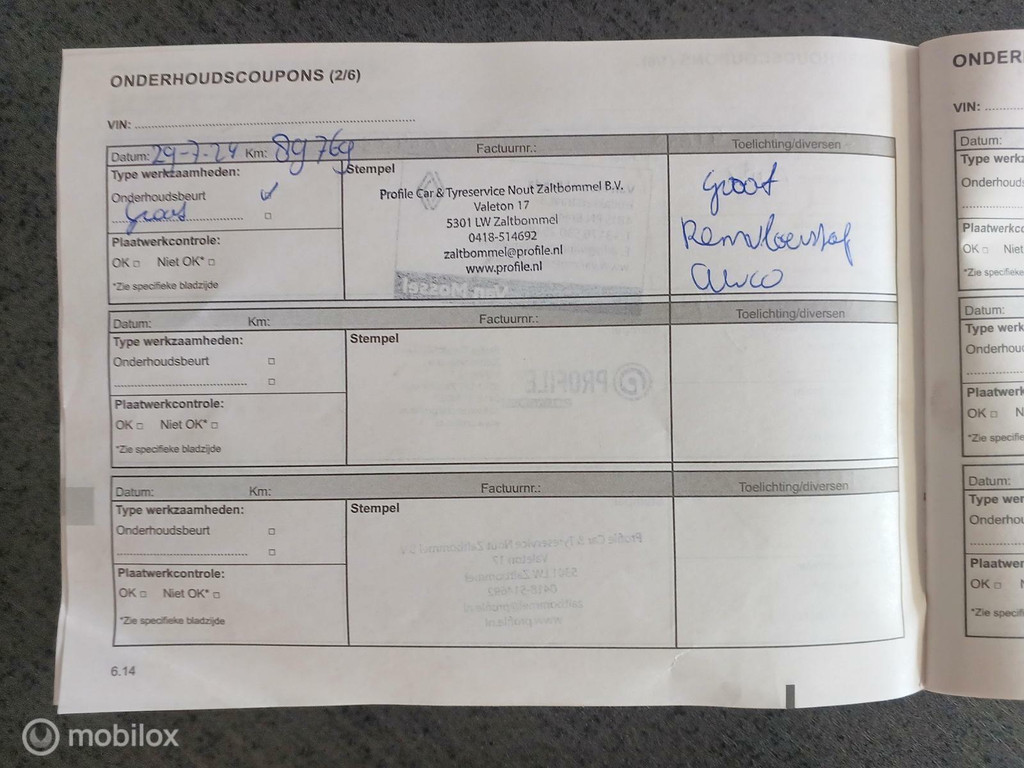 ONDERHOUDSCOUPONS (2/6)
VIN:
Datum: 29-7-24 Km: 89769 Factuurnr.: Toelichting/diversen
Type werkzaamheden:
Onderhoudsbeurt
Groot
Plaatwerkcontrole:
OK Niet OK*
*Zie specifieke bladzijde
Stempel
Profile Car & Tyreservice Nout Zaltbommel B.V.
Valeton 17
5301 LW Zaltbommel
0418-514692
zaltbommel@profile.nl
www.profile.nl
Groot
Remvloeistof
Airco
Datum: Km: Factuurnr.: Toelichting/diversen
Type werkzaamheden:
Onderhoudsbeurt
Plaatwerkcontrole:
OK Niet OK*
*Zie specifieke bladzijde
Stempel
Datum: Km: Factuurnr.: Toelichting/diversen
Type werkzaamheden:
Onderhoudsbeurt
Plaatwerkcontrole:
OK Niet OK*
*Zie specifieke bladzijde
Stempel
6.14
ONDER
VIN:
Datum:
Type wer
Onderhouds
Plaatwerkco
OK
*Zie specifie
Datum:
Type werk
Onderhou
Plaatwerk
OK
*Zie specifie
Datum:
Type wer
Onderhou
Plaatwer
OK
*Zie speci
mobilox